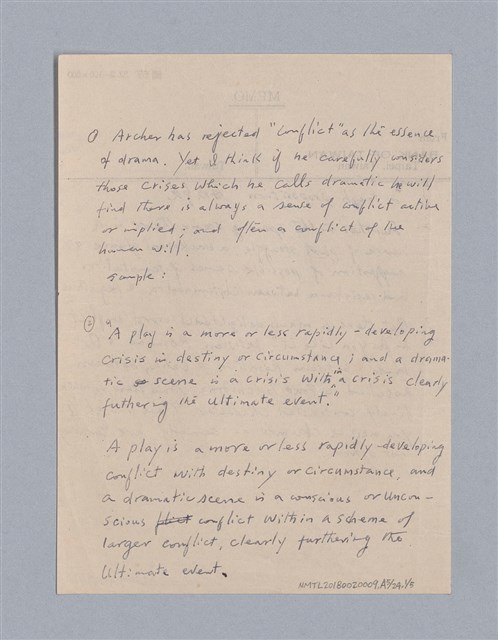 ① Archer has rejected "conflict" as the essence
of drama. Yet I think if he carefully considers
those crises which he calls dramatic he will
find there is always a sense of conflict active
or implied; and often a conflict of the
human will.
sample:
② "A play is a more or less rapidly-developing
crisis in destiny or circumstance; and a drama-
tic scene is a crisis within a crisis clearly
futhering the ultimate event."
A play is a more or less rapidly-developing
conflict with destiny or circumstance, and
a dramatic scene is a conscious or uncon-
scious conflict within a scheme of
larger conflict, clearly furthering the
ultimate event.
NMTL20180020009.A5/24.1/5
MEMO